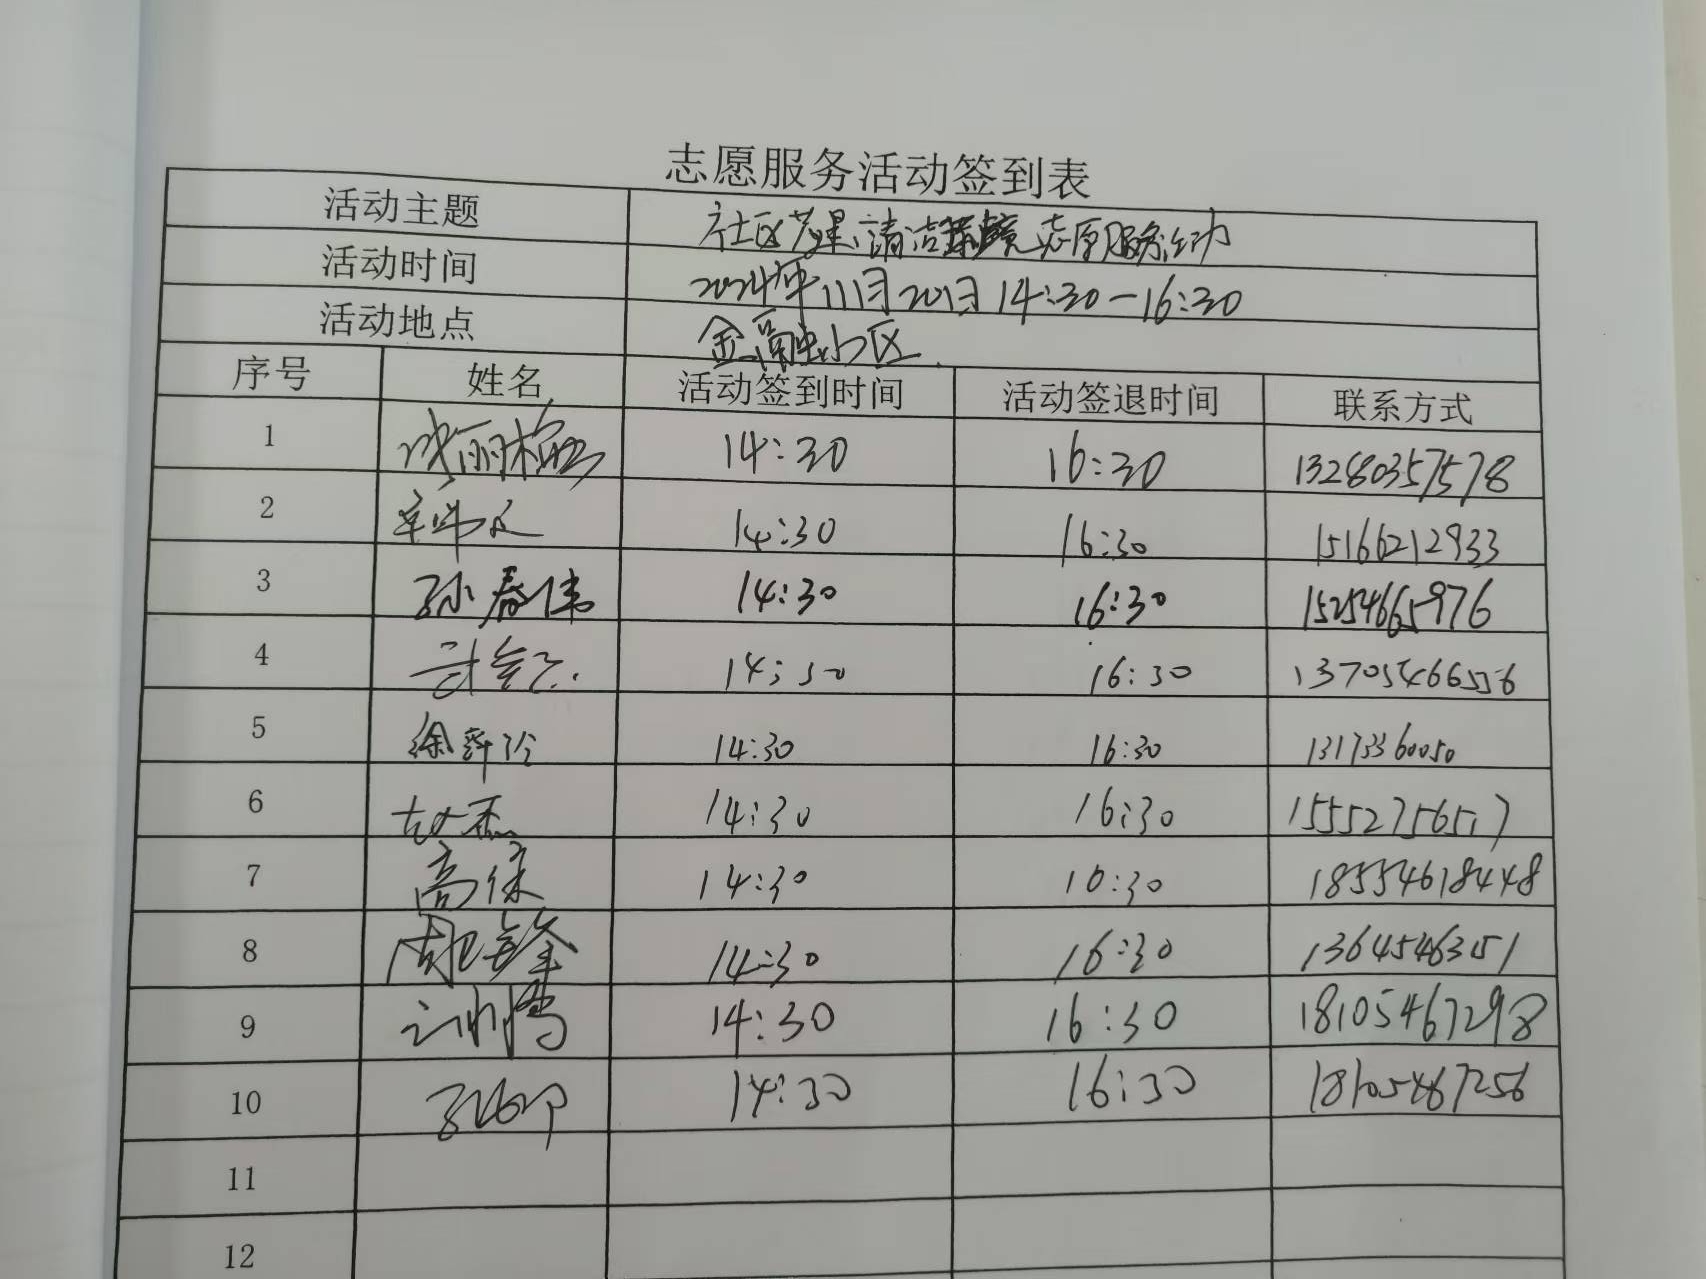 志愿服务活动签到表
活动主题 社区 清洁环境志愿服务活动
活动时间 2024年11月20日14:30-16:30
活动地点 金融小区
序号 姓名 活动签到时间 活动签退时间 联系方式
1 14:30 16:30 13280357578
2 14:30 16:30 15166212933
3 孙春伟 14:30 16:30 15254665976
4 14:30 16:30 13705466556
5 徐 14:30 16:30 13173360050
6 14:30 16:30 15552756517
7 高 14:30 16:30 18554618448
8 14:30 16:30 13645463151
9 14:30 16:30 18105467298
10 14:30 16:30 18105467256
11
12